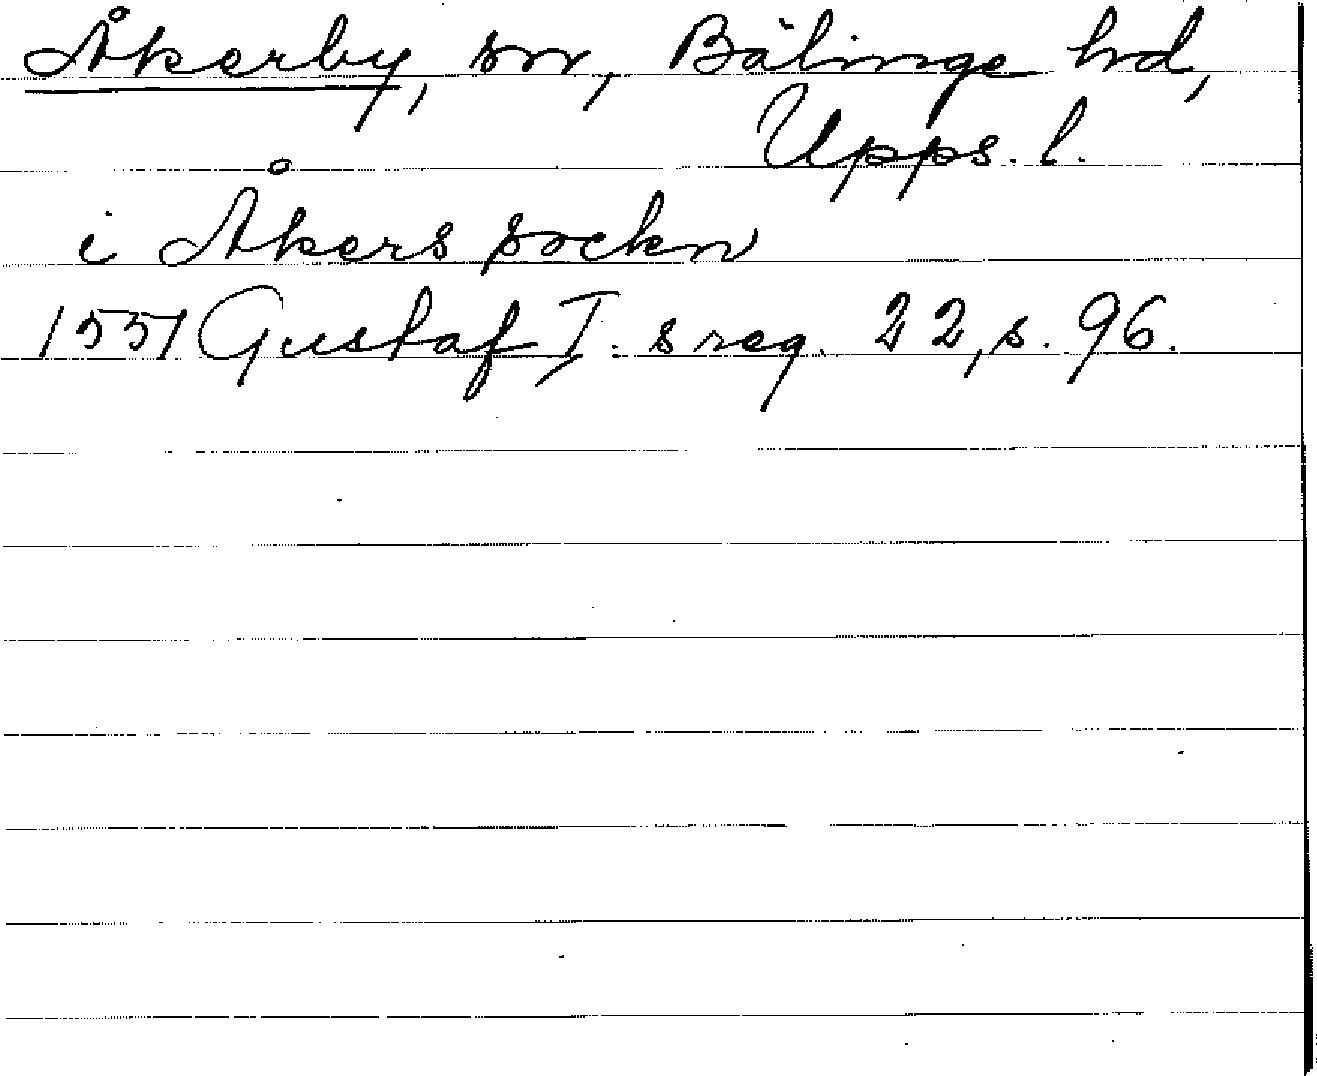 Åkerby, sn, Bälinge hd,
Upps. l.
i Åkers sockn
1551 Gustaf I. s reg. 22, s. 96.